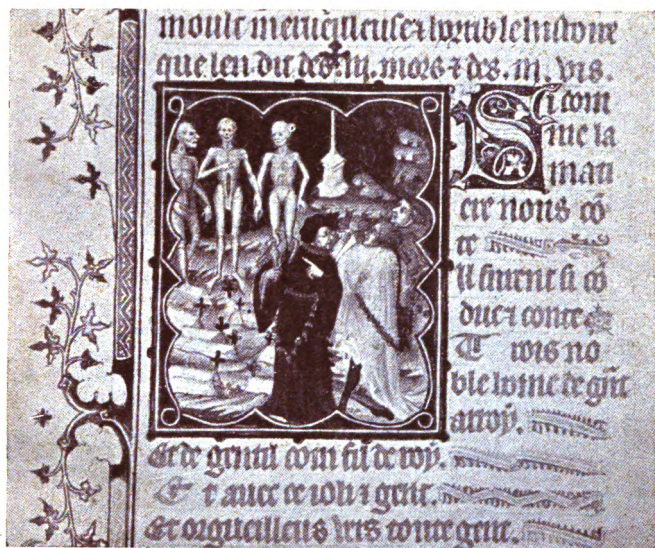 moult merueilleuse ⁊ horrible histoire
que len dit des .iij. mors ⁊ des .iij. vis.
Si com
me la
mati
ere nous cō
te
il furent si cō
duc ⁊ conte
Trois no
ble home de gñt
arroy.
Et de gentil com fil de roy.
Et auec ce ioli ⁊ gent.
Et orguilleus vers toute gent.